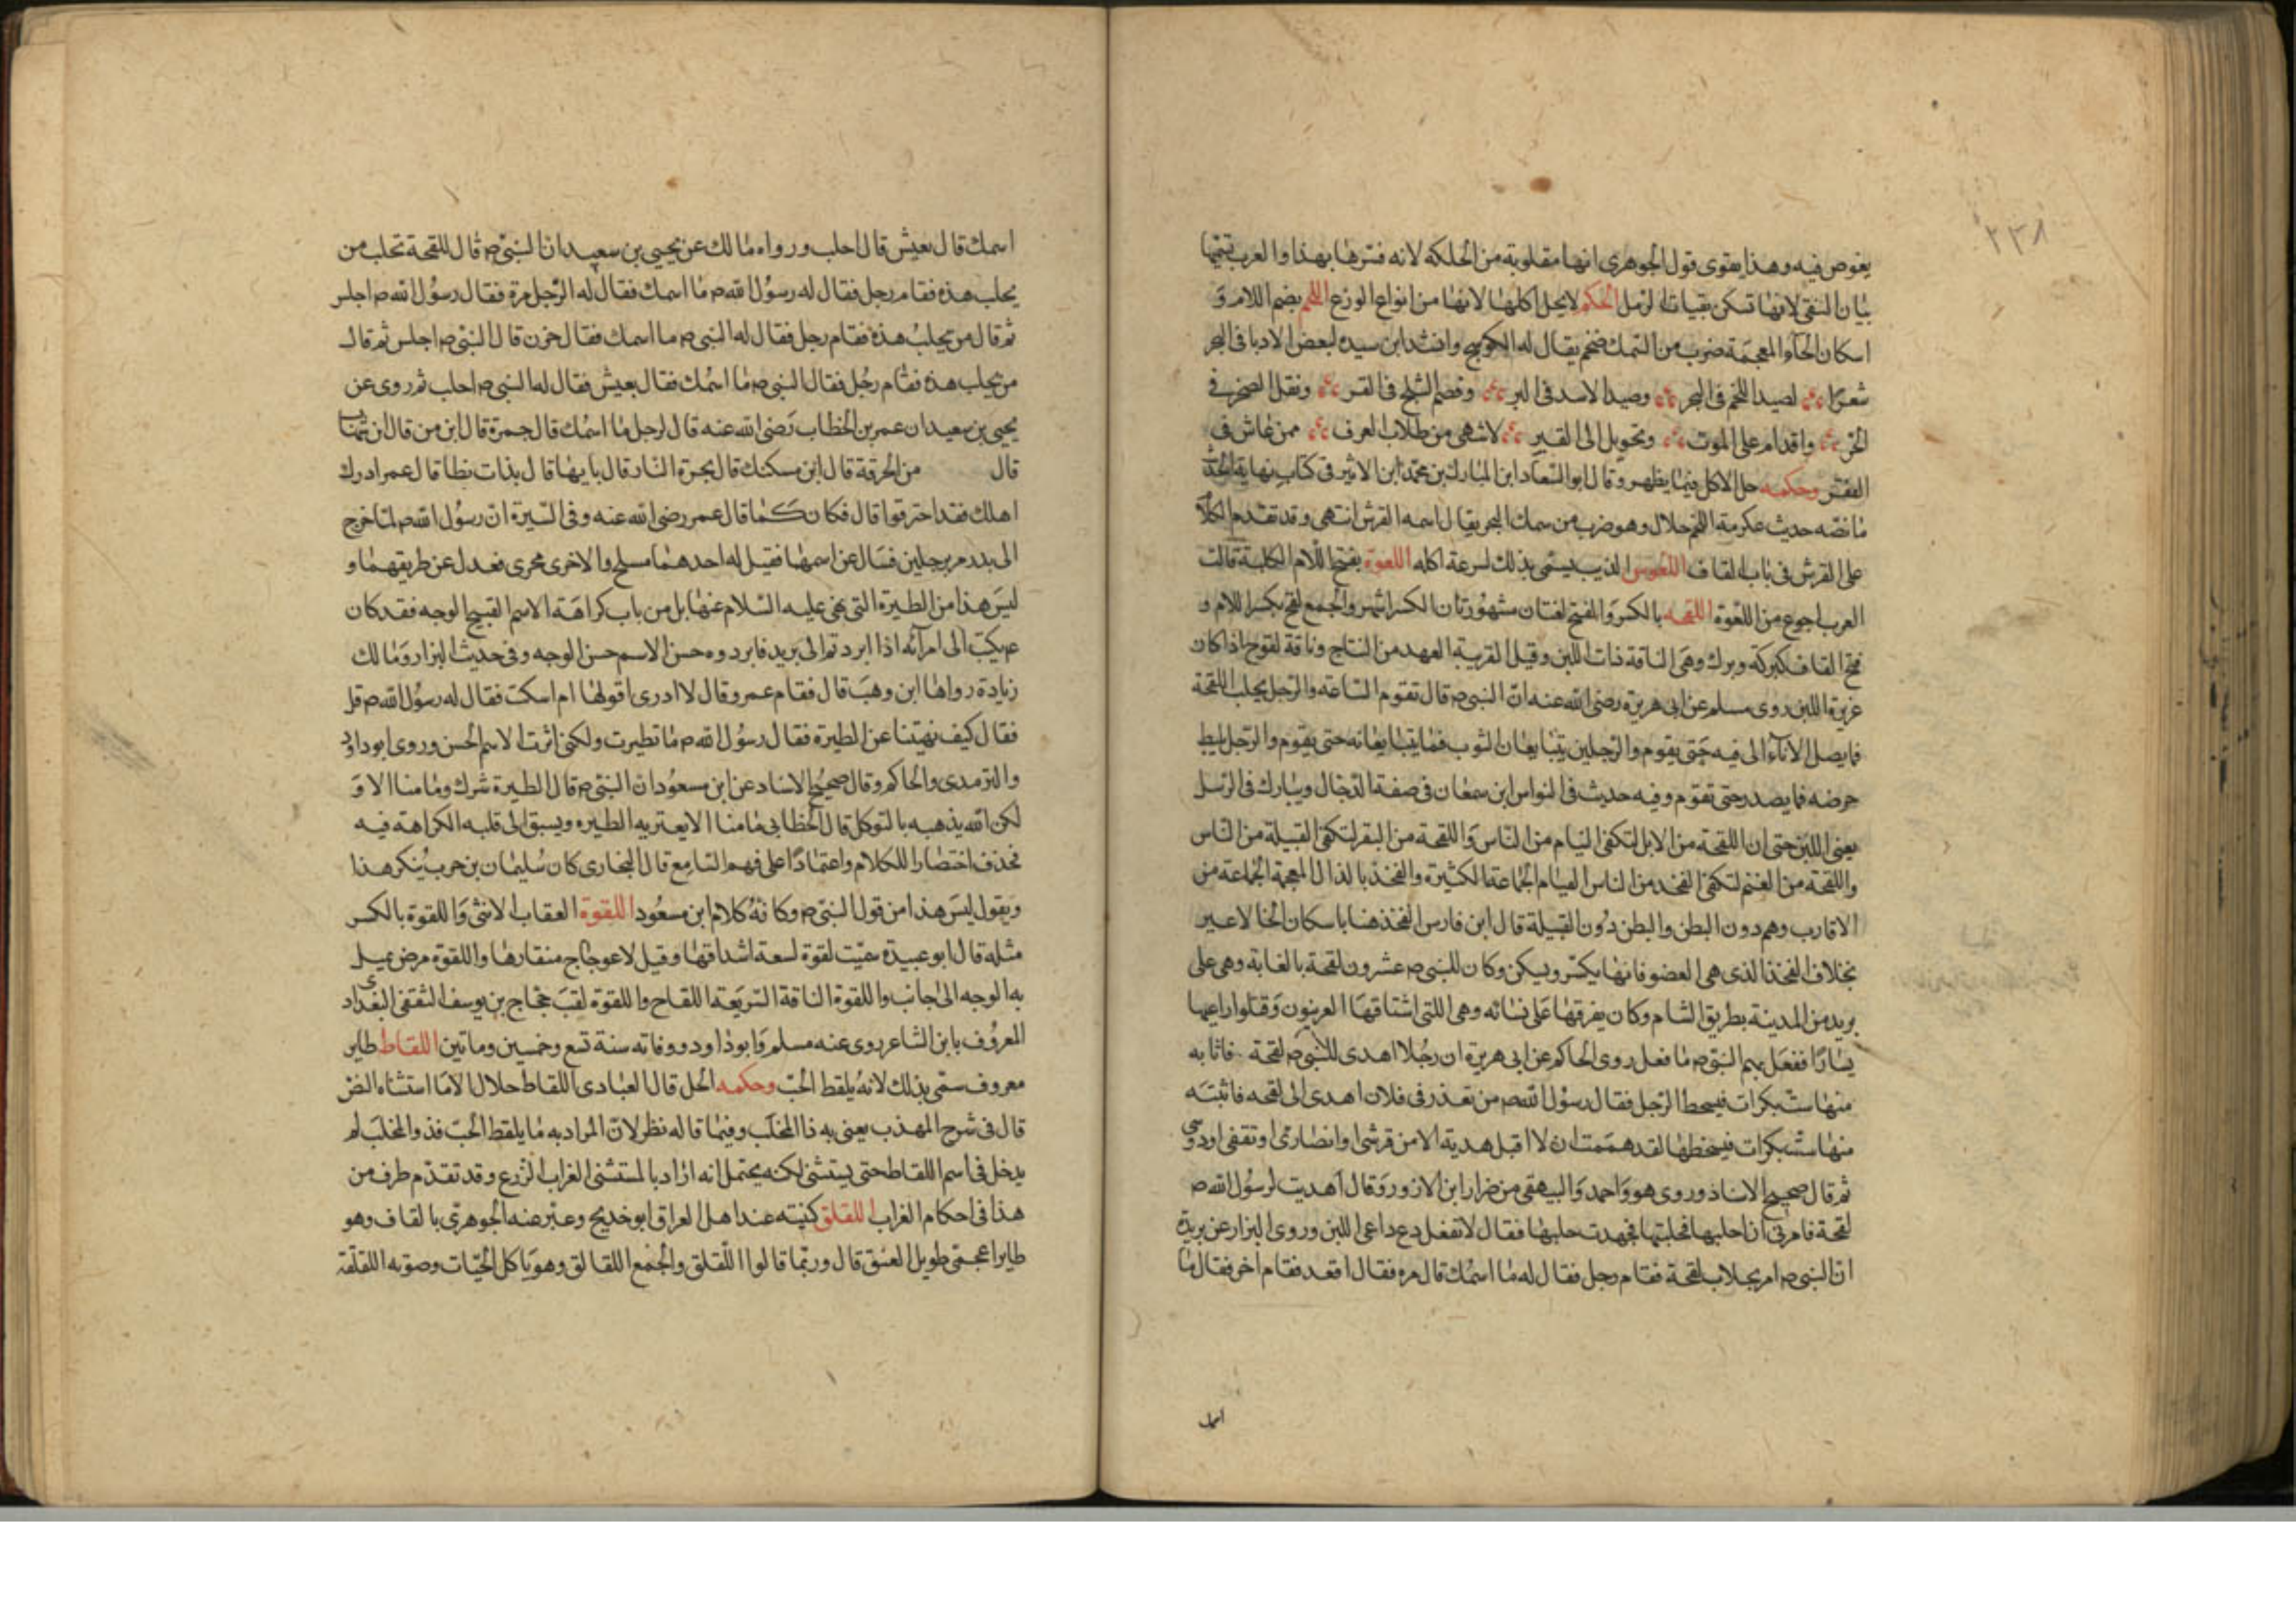 ٢٣٨
يغوص فيه وهذا يقوى قول الجوهرى انها مقلوبة من الحلكة لانه فسرها بهذا والعرب تسميها
بنان النقى لانها تسكن نقيات الرمل الحكم لا يحل اكلها لانها من انواع الوزغ اللخم بضم اللام و
اسكان الخآء المعجمة ضرب من السمك ضخم يقال له الكوسج وانشد ابن سيده لبعض الادبا فى البحر
شعرًا لصيد اللخم فى البحر وصيد الاسد فى البر وقضم الثلج فى القر ونقل الصخر فى
الحر واقدام على الموت وتحويل الى القبر لاشهى من طلاب العرف ممن عاش فى
الفقر وحكمه حل الاكل فيما يظهر وقال ابو السعادات المبارك بن محمد ابن الاثير فى كتاب نهاية الحديث
ما نصه حديث عكرمة اللخم حلال وهو ضرب من سمك البحر يقال اسمه القرش انتهى وقد تقدم الكلام
على القرش فى باب القاف اللعوس الذيب يسمى بذلك لسرعة اكله اللعوة بفتح اللام الكلبة قالت
العرب اجوع من اللعوة اللقحه بالكسر والفتح لغتان مشهورتان الكسر اشهر والجمع لقح بكسر اللام و
فتح القاف كبركة وبرك وهى الناقة ذات اللبن وقيل القريبة العهد من النتاج وناقة لقوح اذا كان
غزيرة اللبن روى مسلم عن ابى هريرة رضى الله عنه ان النبى ص قال تقوم الساعة والرجل يحلب اللقحة
فما يصل الاناء الى فيه حتى يقوم والرجلين يتبايعان الثوب فما يتبايعانه حتى يقوم والرجل يليط
حوضه فما يصدر حتى تقوم وفيه حديث فى النواس ابن سمعان فى صفة الدجال ويبارك فى الرسل
يعنى اللبن حتى ان اللقحة من الابل لتكفى الفيام من الناس واللقحة من البقر لتكفى القبيلة من الناس
واللقحة من الغنم لتكفى الفخذ من الناس الفيام الجماعة الكثيرة والفخذ بالذال المعجمة الجماعة من
الاقارب وهم دون البطن والبطن دون القبيلة قال ابن فارس الفخذ هنا باسكان الخا لا غير
بخلاف الفخذ الذى هى العضو فانها يكسر ويسكن وكان للنبى ص عشرون لقحة بالغابة وهى على
بريد من المدينة بطريق الشام وكان يفرقها على نسائه وهى اللتى اشتاقها العرنيون وقتلوا راعيها
يسارًا ففعل بهم النبى ص ما فعل روى الحاكم عن ابى هريرة ان رجلا اهدى للنبى ص لقحة فاثابه
منها ست بكرات فسخط الرجل فقال رسول الله ص من تعذر فى فلان اهدى الى لقحه فاثبته
منها ست بكرات فيسخطها لقد هممت ان لا اقبل هدية الا من قرشى او انصارى او ثقفى او دوسى
ثم قال صحيح الاسناد وروى هو واحمد والبيهقى من ضرار ابن الازور وقال اهديت لرسول الله ص
لقحة فامرنى ان احلبها فحلبتها فجهدت حلبها فقال لا تفعل دع داعى اللبن وروى البزار عن بريدة
ان النبى ص امر بحلاب لقحة فقام رجل فقال له ما اسمك قال مره فقال اقعد فقام اخر فقال ما
اسمك
اسمك قال يعيش قال احلب ورواه مالك عن يحيى بن سعيد ان النبى ص قال للقحة تحلب من
يحلب هذه فقام رجل فقال له رسول الله ص ما اسمك فقال له الرجل مرة فقال رسول الله ص اجلس
ثم قال من يحلب هذه فقام رجل فقال له النبى ص ما اسمك فقال حزن قال النبى ص اجلس ثم قال
من يحلب هذه فقام رجل فقال النبى ص ما اسمك فقال يعيش فقال له النبى ص احلب ثم روى عن
يحيى بن سعيد ان عمر بن الخطاب رضى الله عنه قال لرجل ما اسمك قال جمرة قال ابن من قال ابن شهاب
قال من الحرقة قال اين مسكنك قال بحرة النار قال بايها قال بذات نطا قال عمر ادرك
اهلك فقد احترقوا قال فكان كما قال عمر رضى الله عنه وفى السيرة ان رسول الله ص لما خرج
الى بدر مر برجلين فسال عن اسمها فقيل له احدهما مسلح والاخرى محرى فعدل عن طريقهما و
ليس هذا من الطيرة التى نهى عليه السلام عنها بل من باب كراهة الاسم القبيح الوجه فقد كان
ع يكتب الى امرآئه اذا ابردتم الى بريد فابردوه حسن الاسم حسن الوجه وفى حديث البزار ومالك
زيادة رواها ابن وهب قال فقام عمر وقال لا ادرى اقولها ام اسكت فقال له رسول الله ص قل
فقال كيف نهيتنا عن الطيرة فقال رسول الله ص ما تطيرت ولكنى اثرت الاسم الحسن وروى ابو داود
والترمدى والحاكم وقال صحيح الاسناد عن ابن مسعود ان النبى ص قال الطيرة شرك وما منا الا و
لكن الله يذهبه بالتوكل قال الخطابى ما منا الا يعتريه الطيره ويسبق الى قلبه الكراهة فيه
فحذف اختصارا للكلام واعتمادًا على فهم السامع قال البخارى كان سليمان بن حرب ينكر هذا
ويقول ليس هذا من قول النبى ص وكانه كلام ابن مسعود اللقوة العقاب الانثى واللقوة بالكسر
مثله قال ابو عبيدة سميت لقوة لسعة اشداقها وقيل لاعوجاج منقارها واللقوة مرض يميل
به الوجه الى جانب واللقوة الناقة السريعة اللقاح واللقوة لقب حجاج بن يوسف الثقفى البغدادى
المعروف بابن الشاعر روى عنه مسلم وابو داود ووفاته سنة تسع وخمسين وماتين اللقاط طاير
معروف سمى بذلك لانه يلقط الحب وحكمه الحل قال العبادى اللقاط حلال الا ما استثناه النص
قال فى شرح المهذب يعنى به ذا المخلب وفيما قاله نظر لان المراد به ما يلقط الحب فذو المخلب لم
يدخل فى اسم اللقاط حتى يستثنى لكنه يحتمل انه اراد بالمستثنى الغراب الزرع وقد تقدم طرف من
هذا فى احكام الغراب اللقلق كنيته عند اهل العراق ابو خديج وعبر عنه الجوهرى بالقاف وهو
طاير اعجمى طويل العنق قال وربما قالوا اللقلق والجمع اللقالق وهو ياكل الحيات وصوته اللقلقة